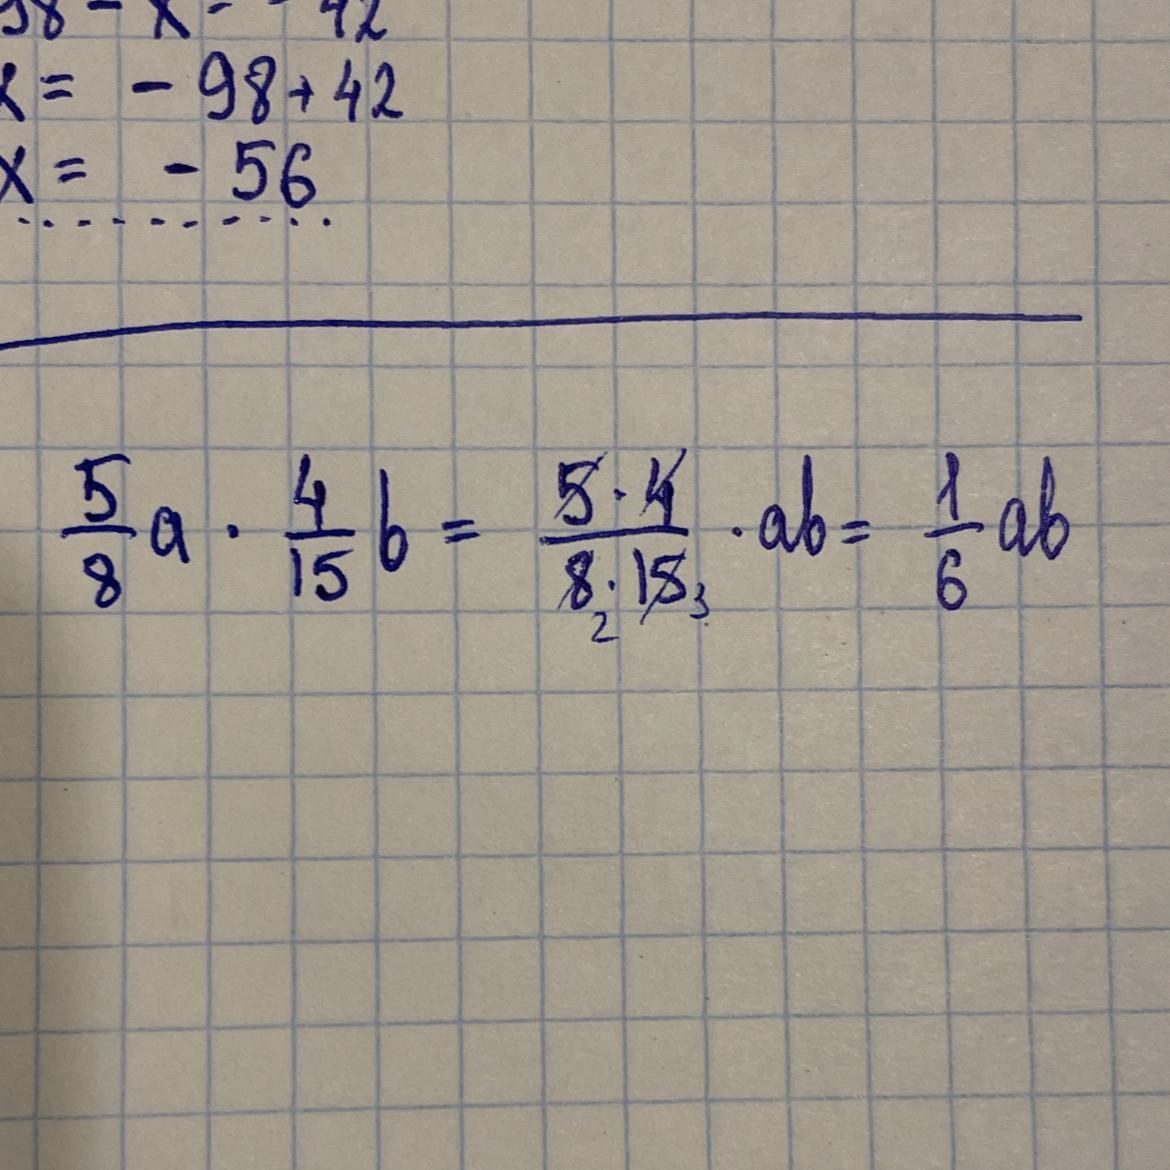 98 - x = - 42
x = - 98 + 42
x = - 56
5/8 a · 4/15 b = 5·4/8·15 · ab = 1/6 ab
2 3